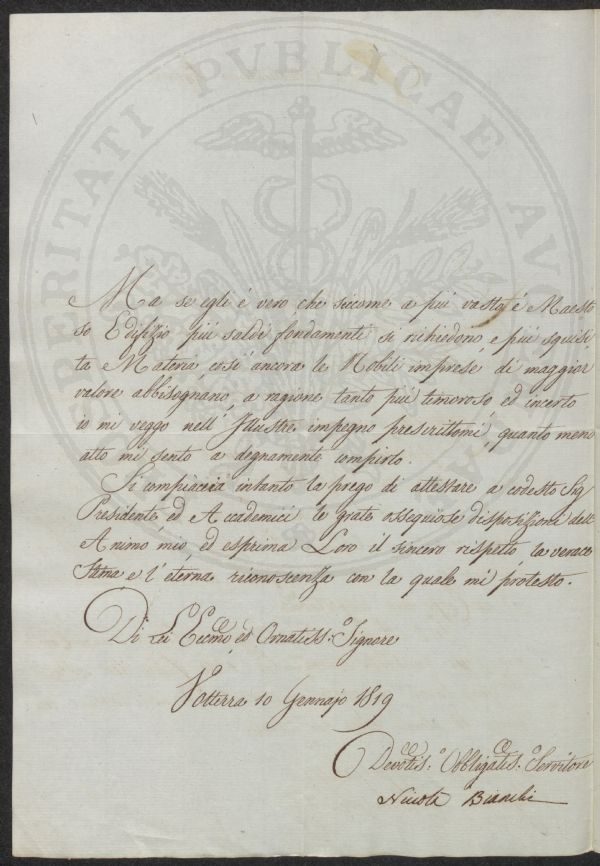 PROSPERITATI PVBLICAE AVGENDAE
Ma se egli è vero che siccome a più vasto, e Maesto
so Edifizio più saldi fondamenti si richiedono, e più squisi
ta Materia, così ancora le Nobili imprese di maggior
valore abbisognano, a ragione tanto più timoroso, ed incerto
io mi veggo nell'Illustre impegno prescrittomi, quanto meno
atto mi sento a degnamente compirlo.
Si compiaccia intanto la prego di attestare a codesto Sig
Presidente, ed Accademici le grate ossequiose disposizioni dell'
Animo mio, ed esprima Loro il sincero rispetto, la verace
Stima e l'eterna riconoscenza con la quale mi protesto.
Di Lei Eccmo, ed Ornatiss.o Signore
Volterra 10 Gennajo 1819
Devotis.o Obbligatis.o Servitore
Nicola Bianchi